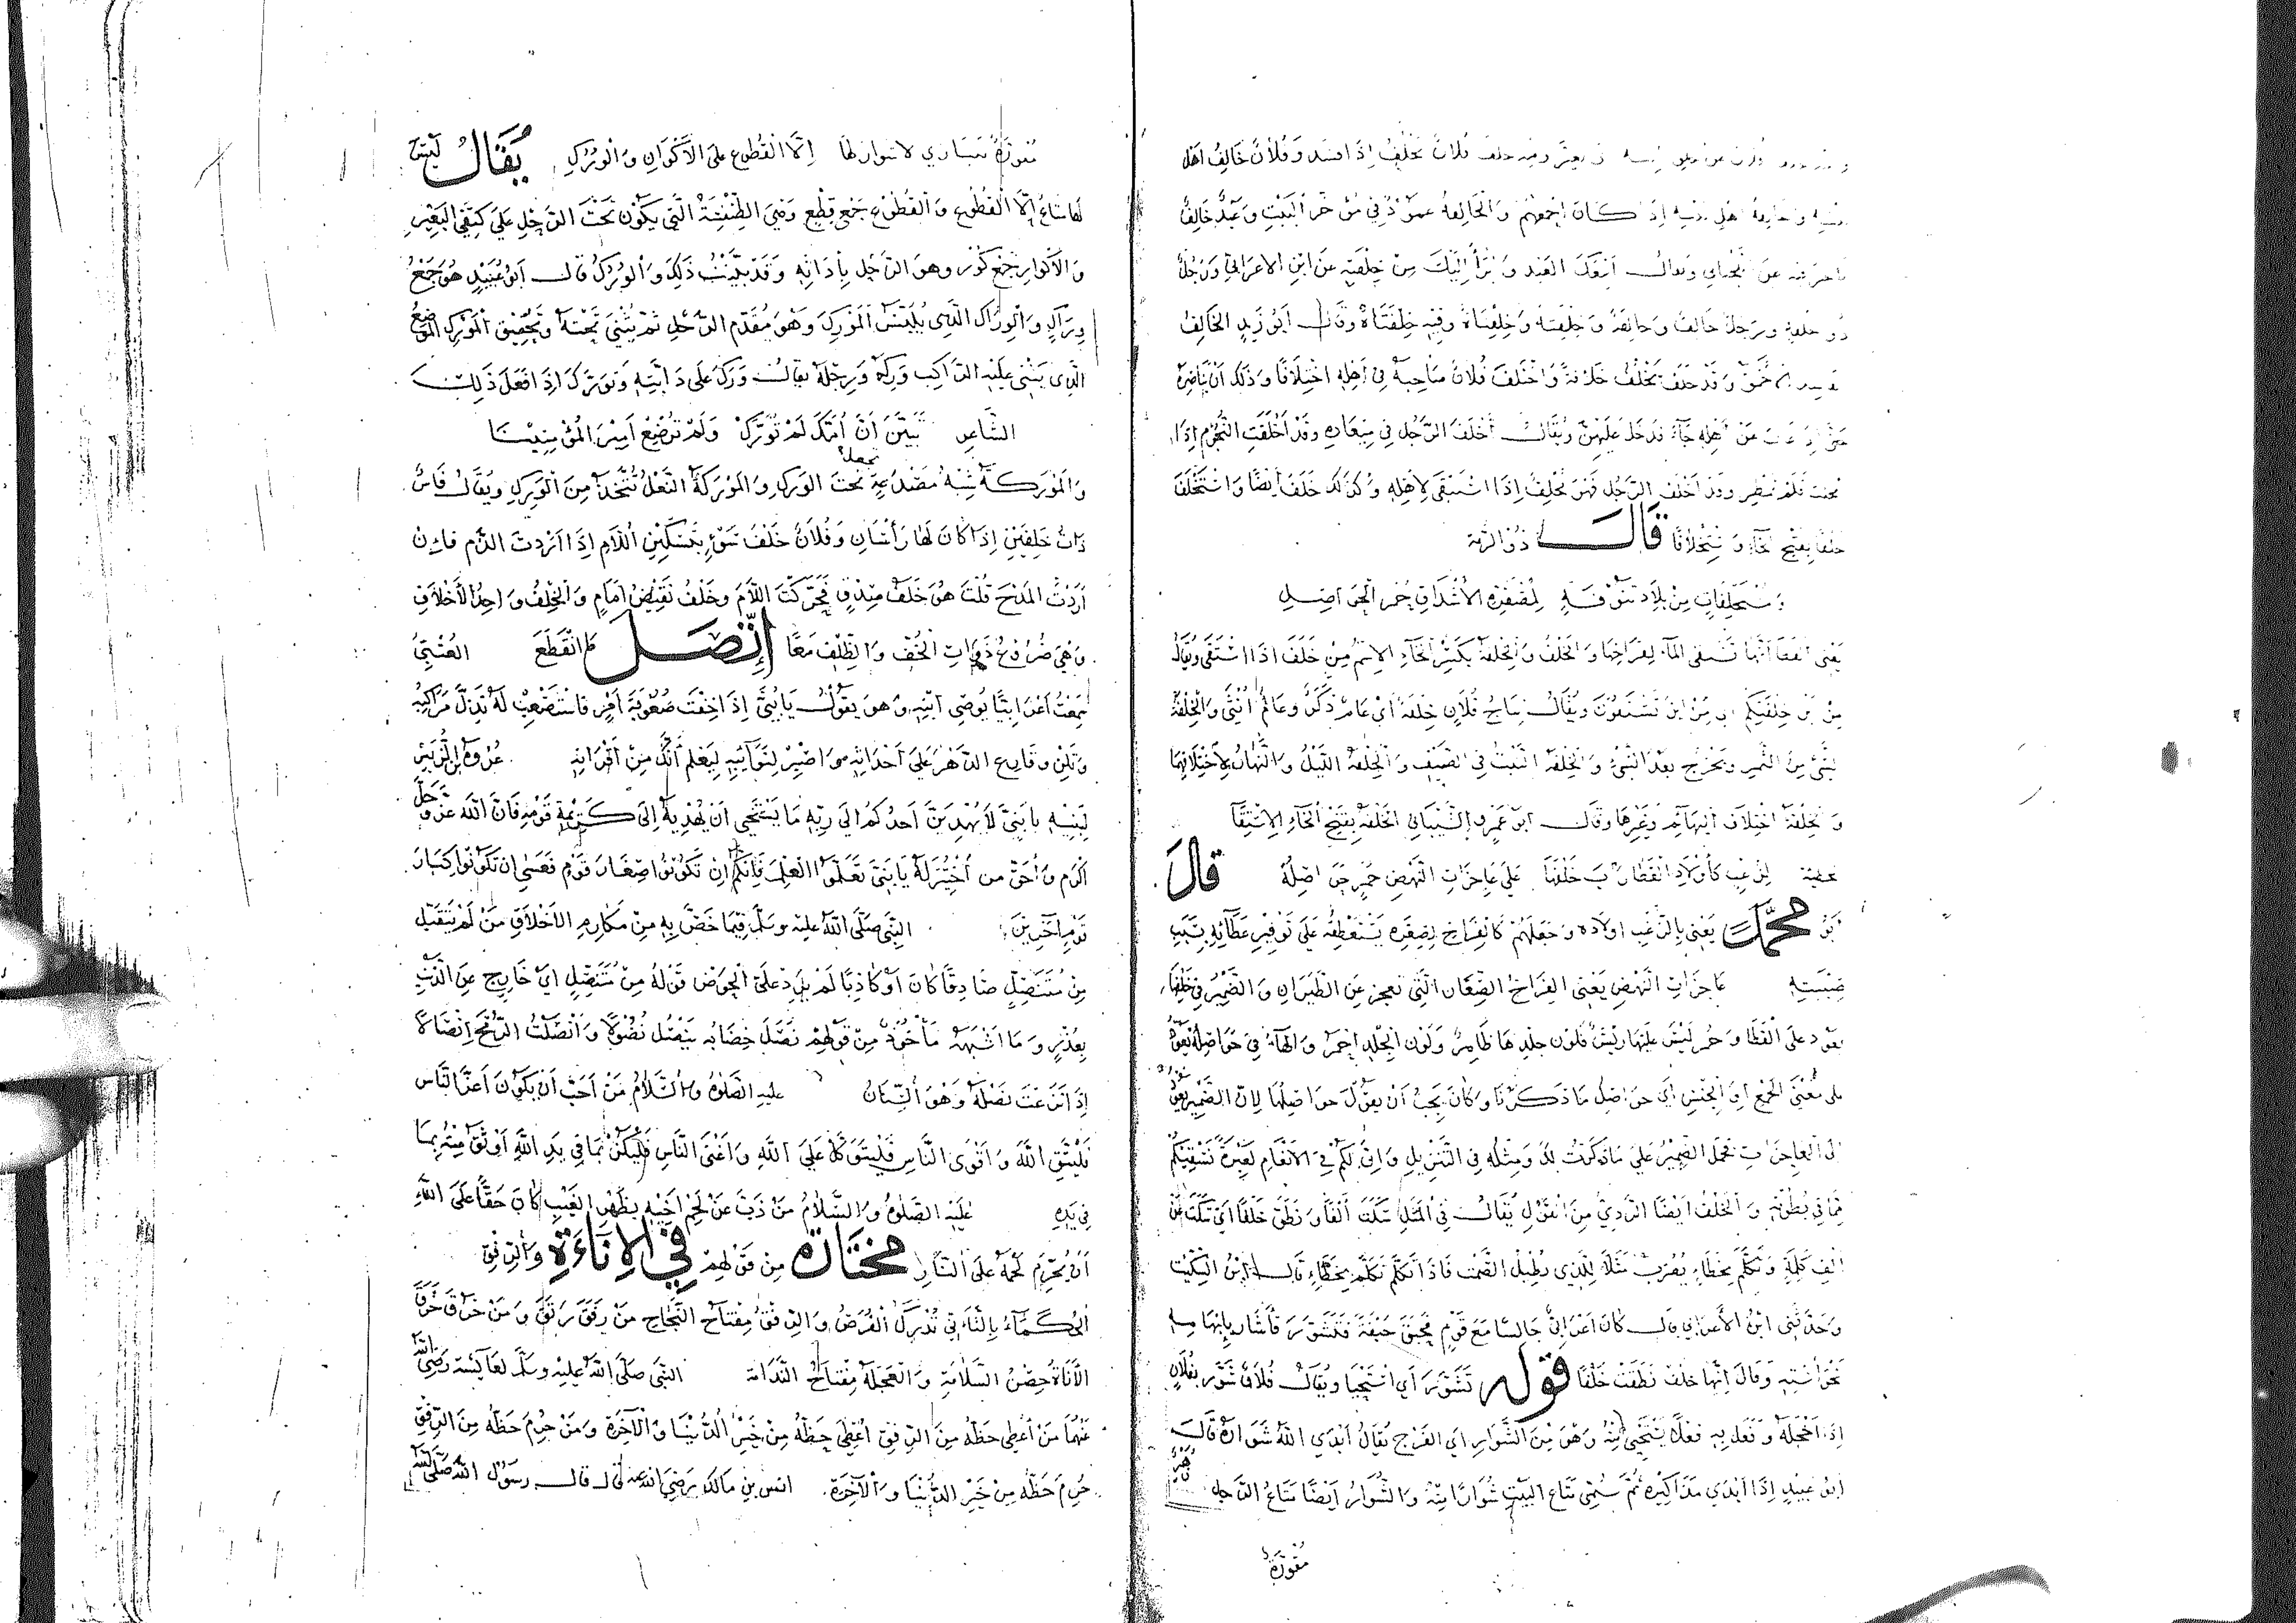 فلان يخلف إذا فسد وفلان خالف أهل
إذا كان أحمقهم والخالفة عمود في مؤخر البيت وعبد خالف
أبيعك العبد وأبرأ إليك من خلفته عن ابن الأعرابي ورجل
ذو خلفة ورجل خالف وخالفة وخلفنة وخلفناة وفيه خلفناة وقال أبو زيد الخالف
وقد خلف يخلف خلافة واختلف فلان صاحبه في أهله اختلافا وذلك أن يباصره
حتى إذا غاب عن أهله جاء فدخل عليهن ويقال أخلف الرجل في ميعاده وقد أخلفت النجوم إذا
فلم تمطر وقد أخلف الرجل فهو مخلف إذا استقى لأهله وكذلك خلف أيضا واستخلف
خلفا بفتح الخاء قال ذو الرمة
ومستخلفات من بلاد تنوفة لمصفرة الأشداق حمر الحواصل
يعني القطا أنها تسقي الماء لفراخها والخلف والخلفة بكسر الخاء الاسم من خلف إذا استقى ويقال
من أين خلفتكم أي من أين تستقون ويقال نتاج فلان خلفة أي عام ذكر وعام أنثى والخلفة
شيء من الثمر ويخرج بعد الشيء والخلفة النبت في الصيف والخلفة الليل والنهار لاختلافهما
والخلفة اختلاف البهائم وغيرها وقال أبو عمرو الشيباني الخلفة بفتح الخاء الاستقا
لزغب كأولاد القطا راث خلفها على عاجزات النهض حمر حواصله قال
أبو محمد يعني بالزغب أولاده وجعلهم كالفراخ لصغره يستعطفه على توفير عطائه بسبب
صبيته عاجزات النهض يعني الفراخ الضعاف التي تعجز عن الطيران والضمير في خلفها
يعود على القطا وحمر ليس عليها ريش فلون جلدها ظاهر ولون الجلد أحمر والهاء في حواصله يعود
على معنى الجمع أو الجنس أي حواصل ما ذكرنا وكان يجب أن يقول حواصلها لأن الضمير يعود
إلى العاجزات فحمل الضمير على ما ذكرت لك ومثله في التنزيل وإن لكم في الأنعام لعبرة نسقيكم
مما في بطونه والخلف أيضا الردي من القول يقال في المثل سكت ألفا ونطق خلفا أي سكت عن
ألف كلمة وتكلم بخطاء يضرب مثلا للذي يطيل الصمت فإذا تكلم تكلم بخطاء قال ابن السكيت
وحدثني ابن الأعرابي قال كان أعرابي جالسا مع قوم فحبق حبقة فتشور فأشار بإبهامه
نحو استه وقال إنها خلف نطقت خلفا قوله تشور أي استحيا ويقال فلان شور بفلان
إذا أخجله وفعل به فعلا يستحيى منه وهو من الشوار أي الفرج يقال أبدى الله شواره قال
أبو عبيد إذا أبدى مذاكيره ثم سمي متاع البيت شوارا منه والشوار أيضا متاع الرحل
مقورة
مقورة تباري لا شوار لها إلا القطوع على الأكوار والورك يقال ليس
لها متاع إلا القطوع والقطوع جمع قطع وهي الطنفسة التي يكون تحت الرحل على كتفي البعير
والأكوار جمع كور وهو الرحل بأداته وقد بينت ذلك والورك قال أبو عبيد هو جمع
وراك والوراك الذي يلبس المورك وهو مقدم الرحل ثم يثنى تحته وتحقيق المورك الموضع
الذي يثني عليه الراكب وركه ورجله يقال ورك على دابته وتورك إذا فعل ذلك
الشاعر تبين أن أمك لم تورك ولم ترضع أمير المؤمنينا
والموركة شبه مصدغة تجعل تحت الورك والموركة النعل تتخذ من الورك ويقال فاس
ذات خلفين إذا كان لها رأسان وفلان خلف سوء بتسكين اللام إذا أردت الذم فإن
أردت المدح قلت هو خلف صدق فحركت اللام وخلف نقيض أمام والخلف واحد الأخلاف
وهي ضروع ذوات الخف والظلف معا إتصل كالقطع العتبي
سمعت أعرابيا يوصي ابنه وهو يقول يا بني إذا خفت صعوبة أمر فاستصعب له تذل مراكبه
وتلن وقايع الدهر على أحداثه واصبر لنوائبه ليعلم أنك من أقرانه عروة بن الزبير
لبنيه يا بني لا يهدين أحدكم إلى ربه ما يستحيي أن يهديه إلى كريمة قومه فإن الله عز وجل
أكرم وأحق من أختير له يا بني تعلموا العلم فإنكم إن تكونوا صغار قوم فعسى أن تكونوا كبار
قوم آخرين النبي صلى الله عليه وسلم فيما خص به من مكارم الأخلاق من لم يتقبل
من متنصل صادقا كان أو كاذبا لم يرد على الحوض قوله من متنصل أي خارج عن الذنب
بعذر وما أشبهه مأخوذ من قولهم نصل خضابه ينصل نصولا وأنصلت الرمح إنصالا
إذا نزعت نصله وهو السنان عليه الصلوة والسلام من أحب أن يكون أعز الناس
فليتق الله وأقوى الناس فليتوكل على الله وأغنى الناس فليكن بما في يد الله أوثق منه بما
في يده عليه الصلوة والسلام من ذب عن لحم أخيه بظهر الغيب كان حقا على الله
أن يحرم لحمه على النار مختارة من قولهم في الإناءة والرفق
الحكماء بالتاني تدرك الفرص والرفق مفتاح النجاح من رفق رتق ومن خرق خرق
الأناة حصن السلامة والعجلة مفتاح الندامة النبي صلى الله عليه وسلم لعايشة رضي الله
عنهما من أعطي حظه من الرفق أعطي حظه من خير الدنيا والآخرة ومن حرم حظه من الرفق
حرم حظه من خير الدنيا والآخرة أنس بن مالك رضي الله عنه قال قال رسول الله صلى الله